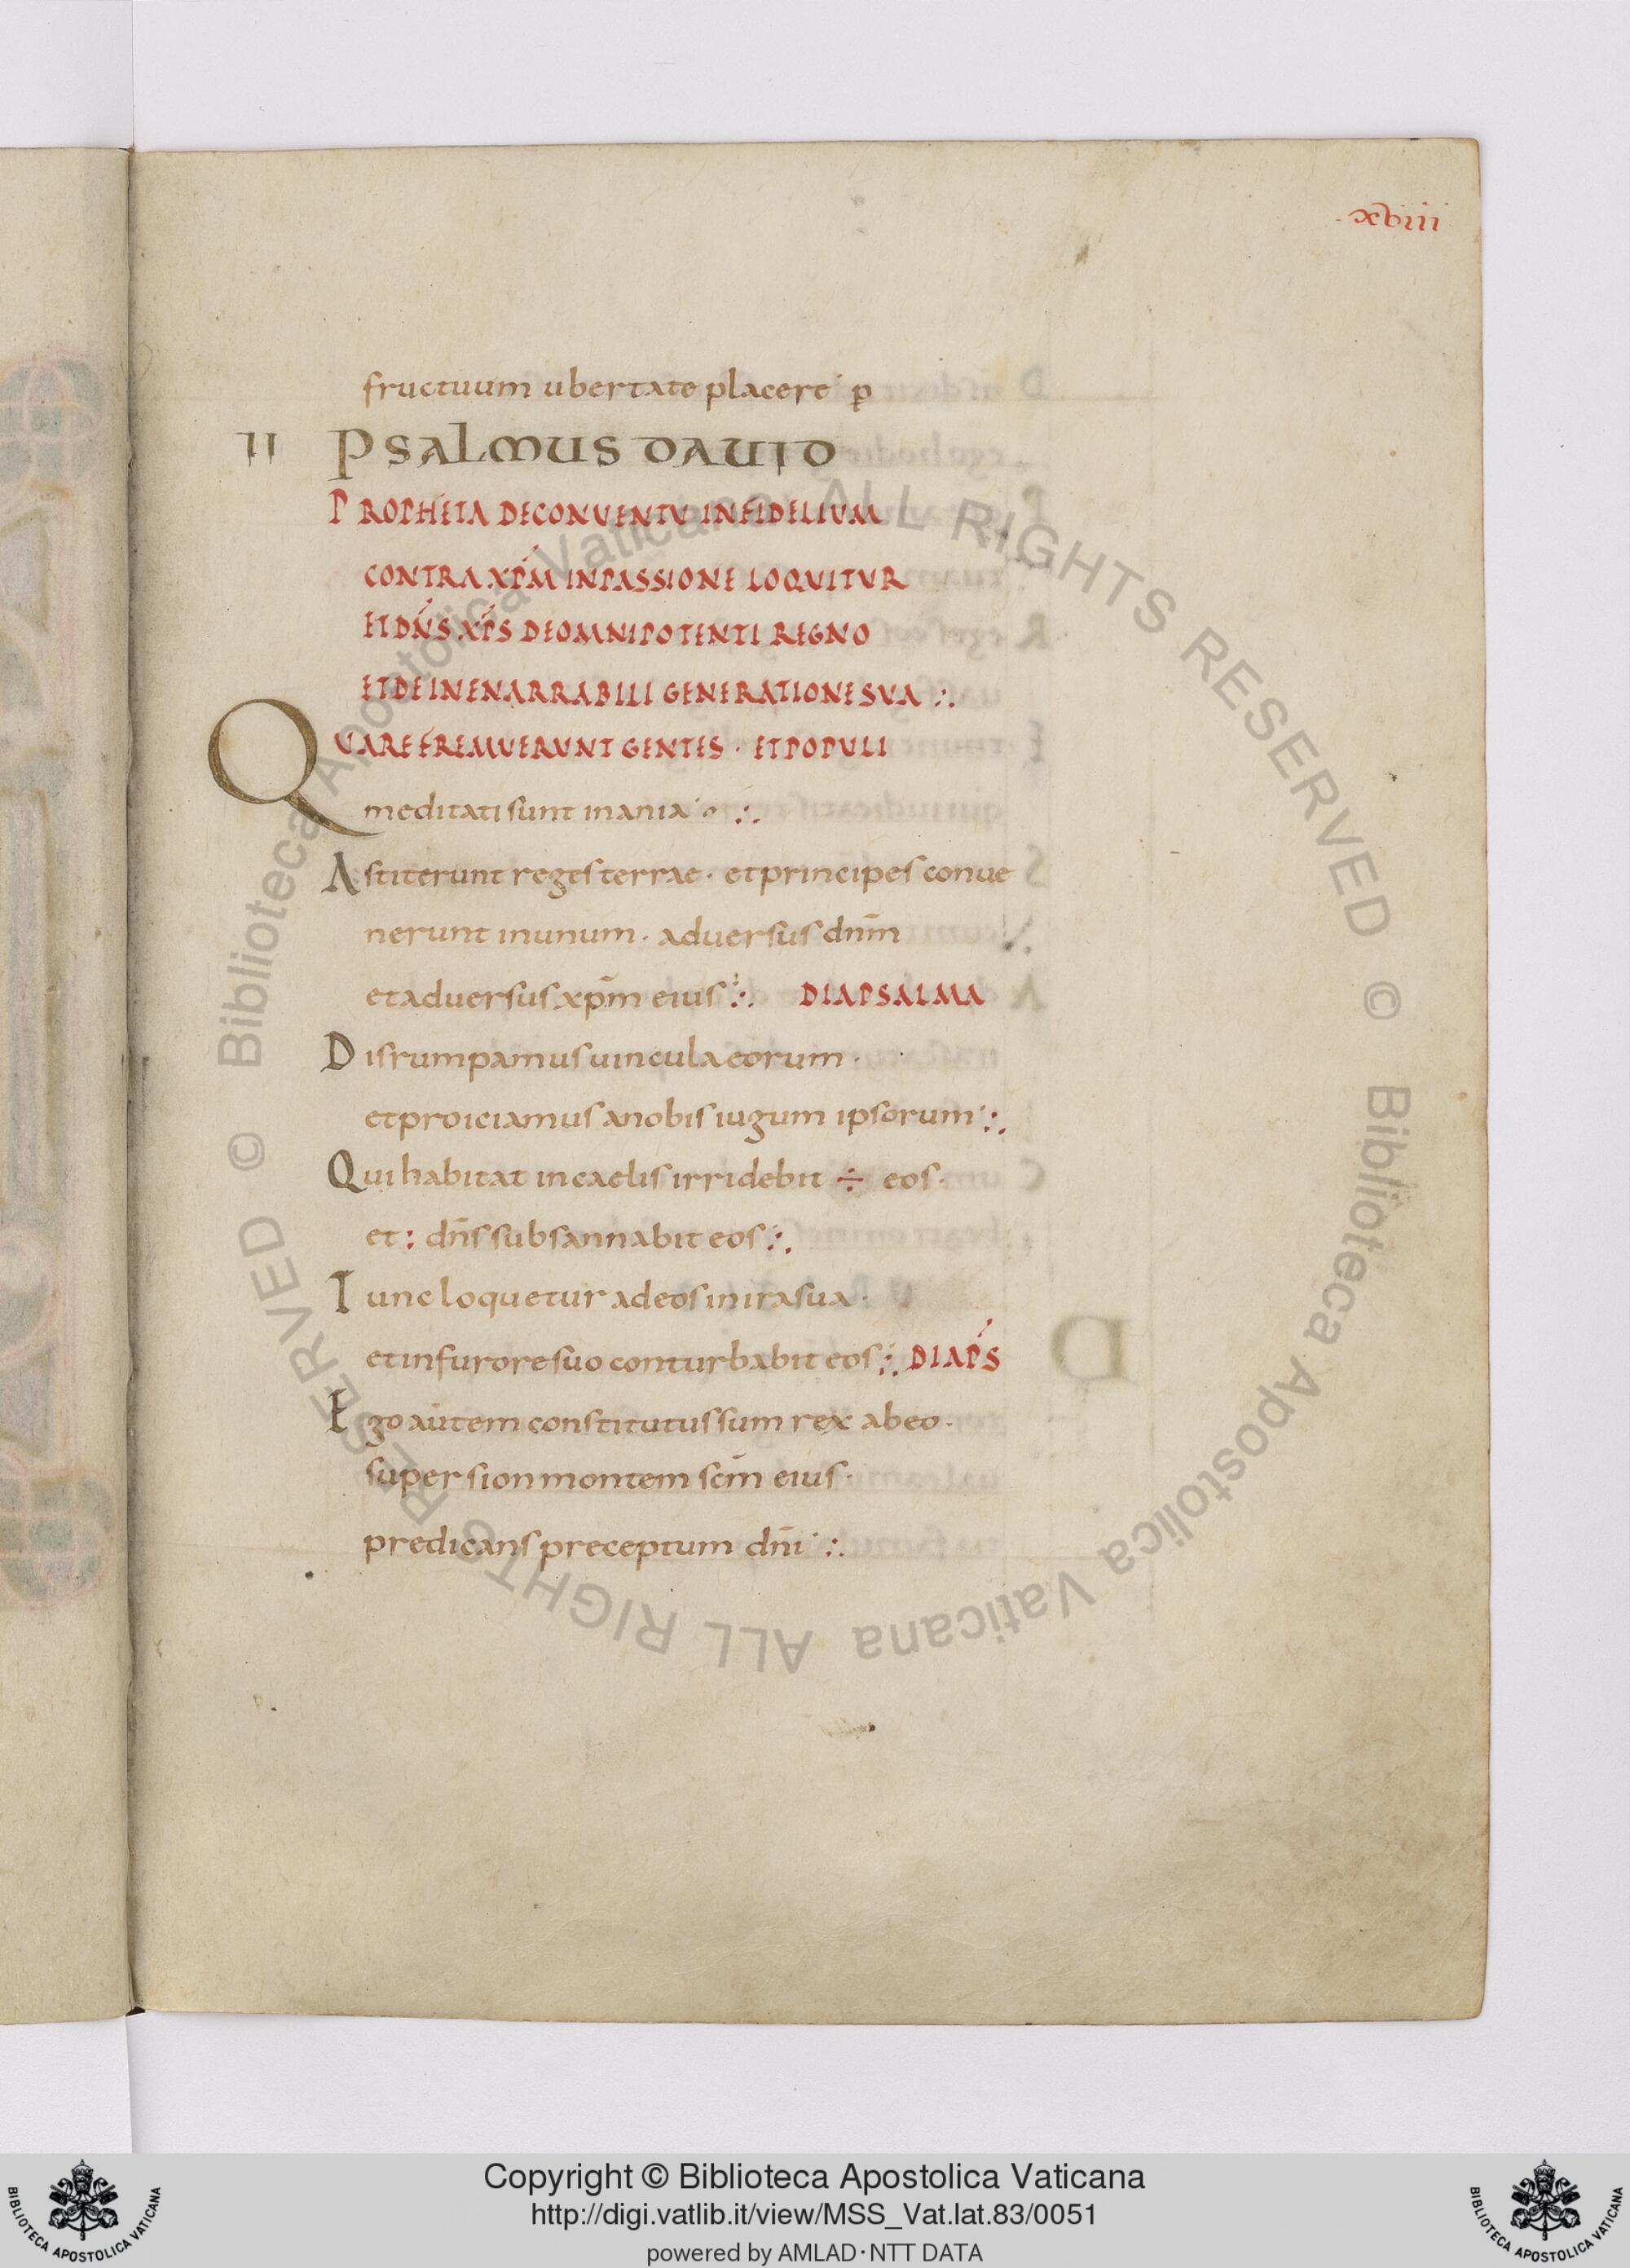 xviiii
fructuum ubertate placere· p̲
II PSALMUS DAUID
PROPHETA DECONVENTV INFIDELIVM
CONTRA XP̅M INPASSIONE LOQUITVR
ET DN̅S XP̅S DEOMNIPOTENTI REGNO
ET DE INENARRABILI GENERATIONE SVA :.
QVARE FREMVERVNT GENTES · ET POPVLI
meditati sunt inania :.
Astiterunt reges terrae · et principes conue
nerunt in unum · aduersus dn̅m
et aduersus xp̅m eius :. DIAPSALMA
Disrumpamus uincula eorum ·
et proiciamus a nobis iugum ipsorum :.
Qui habitat in caelis irridebit ÷ eos ·
et : dn̅s subsannabit eos :.
Tunc loquetur ad eos in ira sua ·
et in furore suo conturbabit eos :. DIAPS
Ego autem constitutus sum rex ab eo ·
super sion montem sc̅m eius ·
predicans preceptum dn̅i :.
© Biblioteca Apostolica Vaticana ALL RIGHTS RESERVED
© Biblioteca Apostolica Vaticana ALL RIGHTS RESERVED
Copyright © Biblioteca Apostolica Vaticana
http://digi.vatlib.it/view/MSS_Vat.lat.83/0051
powered by AMLAD·NTT DATA
BIBLIOTECA APOSTOLICA VATICANA
BIBLIOTECA APOSTOLICA VATICANA